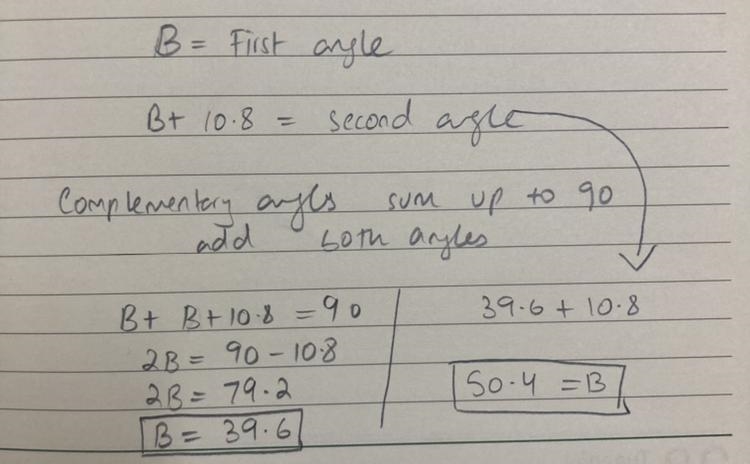 B = First angle
B + 10.8 = second angle
Complementary angls sum up to 90
add both angles
B + B + 10.8 = 90
2B = 90 - 10.8
2B = 79.2
B = 39.6
39.6 + 10.8
50.4 = B